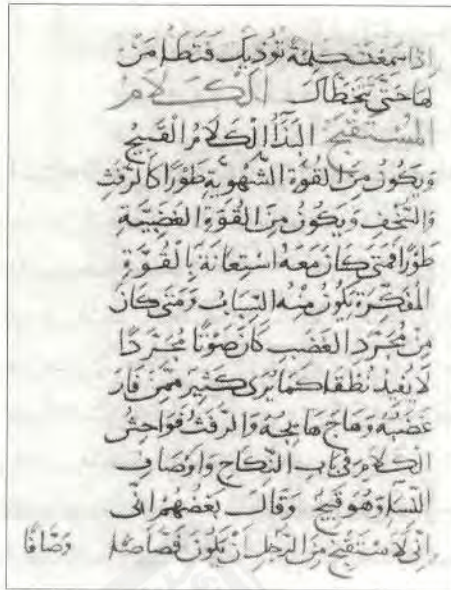 اذا سمعت كلمة تؤذيك فتطامن
لها حتى تتخطاك الكلام
المستقبح البذأ الكلام القبيح
ويكون من القوة الشهوية طورا كالرفث
والسخف ويكون من القوة الغضبية
طورا فمتى كان معه استعانة بالقوة
المفكرة يكون منه السباب ومتى كان
من مجرد الغضب كان صوتا مجردا
لا يفيد نطقا كما يرى كثير ممن فار
غضبه وهاج هايجه والرفث فواحش
الكلام في باب النكاح واوصاف
النسا وهو قبيح وقال بعضهم انى
وانى لاستقبح من الرجل ان يكون وصافا